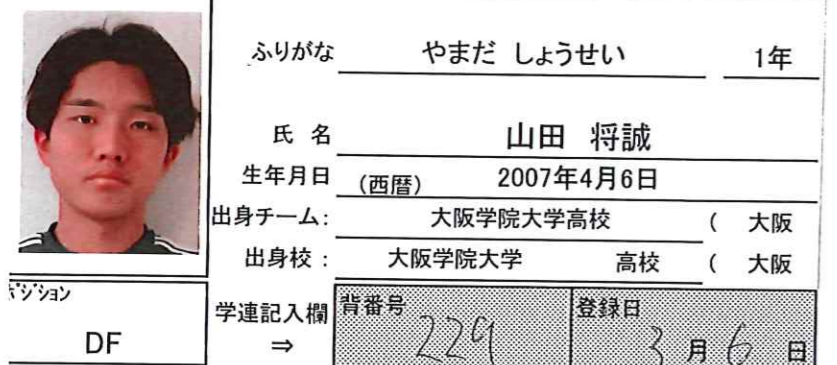 ふりがな やまだ しょうせい 1年
氏 名 山田 将誠
生年月日 (西暦) 2007年4月6日
出身チーム: 大阪学院大学高校 ( 大阪
出身校 : 大阪学院大学 高校 ( 大阪
ポジション
DF
学連記入欄 ⇒
背番号 229
登録日 3月6日